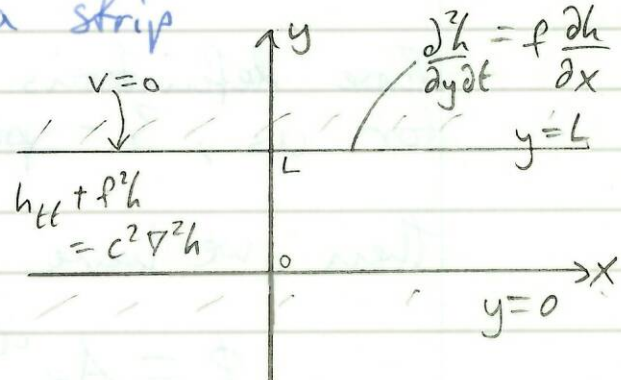 a strip
y
∂²h/∂y∂t = f ∂h/∂x
v=0
y=L
L
h_tt + f²h
= c²∇²h
0
x
y=0